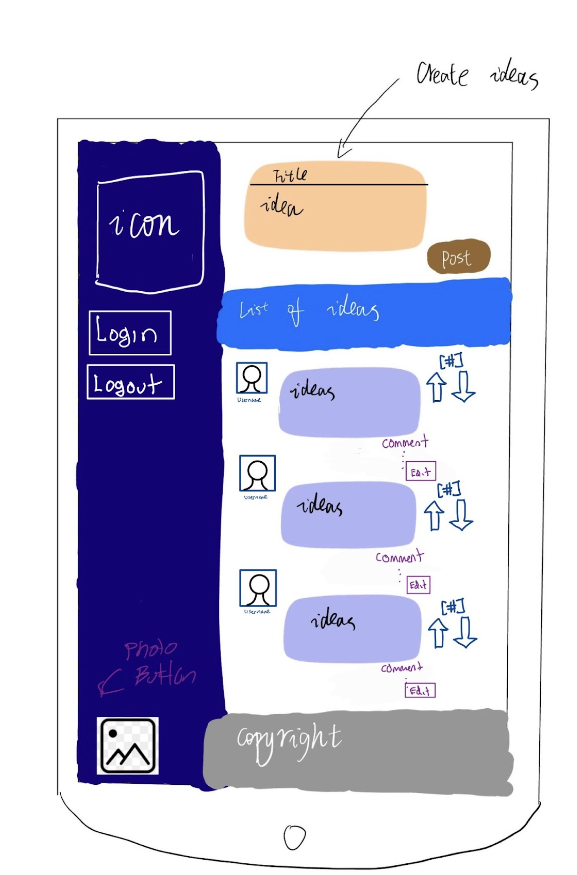 Create ideas
Title
idea
Post
icon
Login
Logout
List of ideas
Username
ideas
[#]
comment
Edit
Username
ideas
[#]
comment
Edit
Username
ideas
[#]
comment
Edit
Photo
Button
Copyright